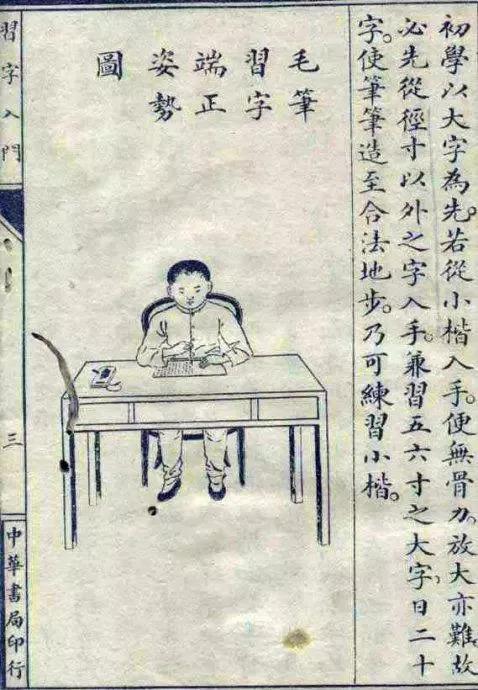 初學以大字為先。若從小楷入手。便無骨力。放大亦難。故
必先從徑寸以外之字入手。兼習五六寸之大字。日二十
字。使筆筆造至合法地步。乃可練習小楷。
毛筆
習字
端正
姿勢
圖
習字入門
三
中華書局印行